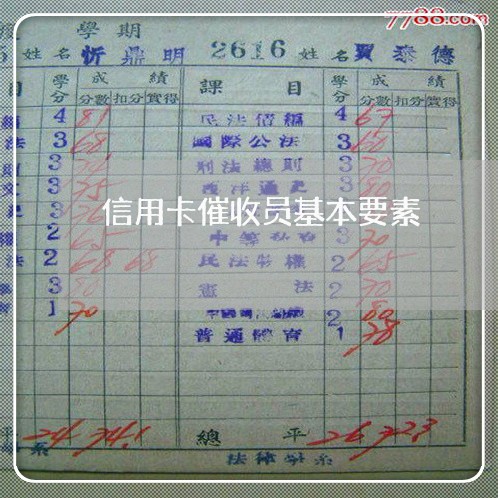 7788.com
學期
姓名 忻鼎明 2616 姓名 賈泰德
目 學分 成績 課目 學分 成績
分數 扣分 實得 分數 扣分 實得
4 81 民法債編 4 67
法 3 68 國際公法 3 60
3 刑法總則 3 70
3 75 西洋通史 3 80
信用卡催收员基本要素
2 65 3 70
法 2 68 68 民法物權 2 65
3 80 憲法 2 70
1 70 2 80
普通體育 1 78
平 24 74.1 總平 26 72.3
系 法律學系